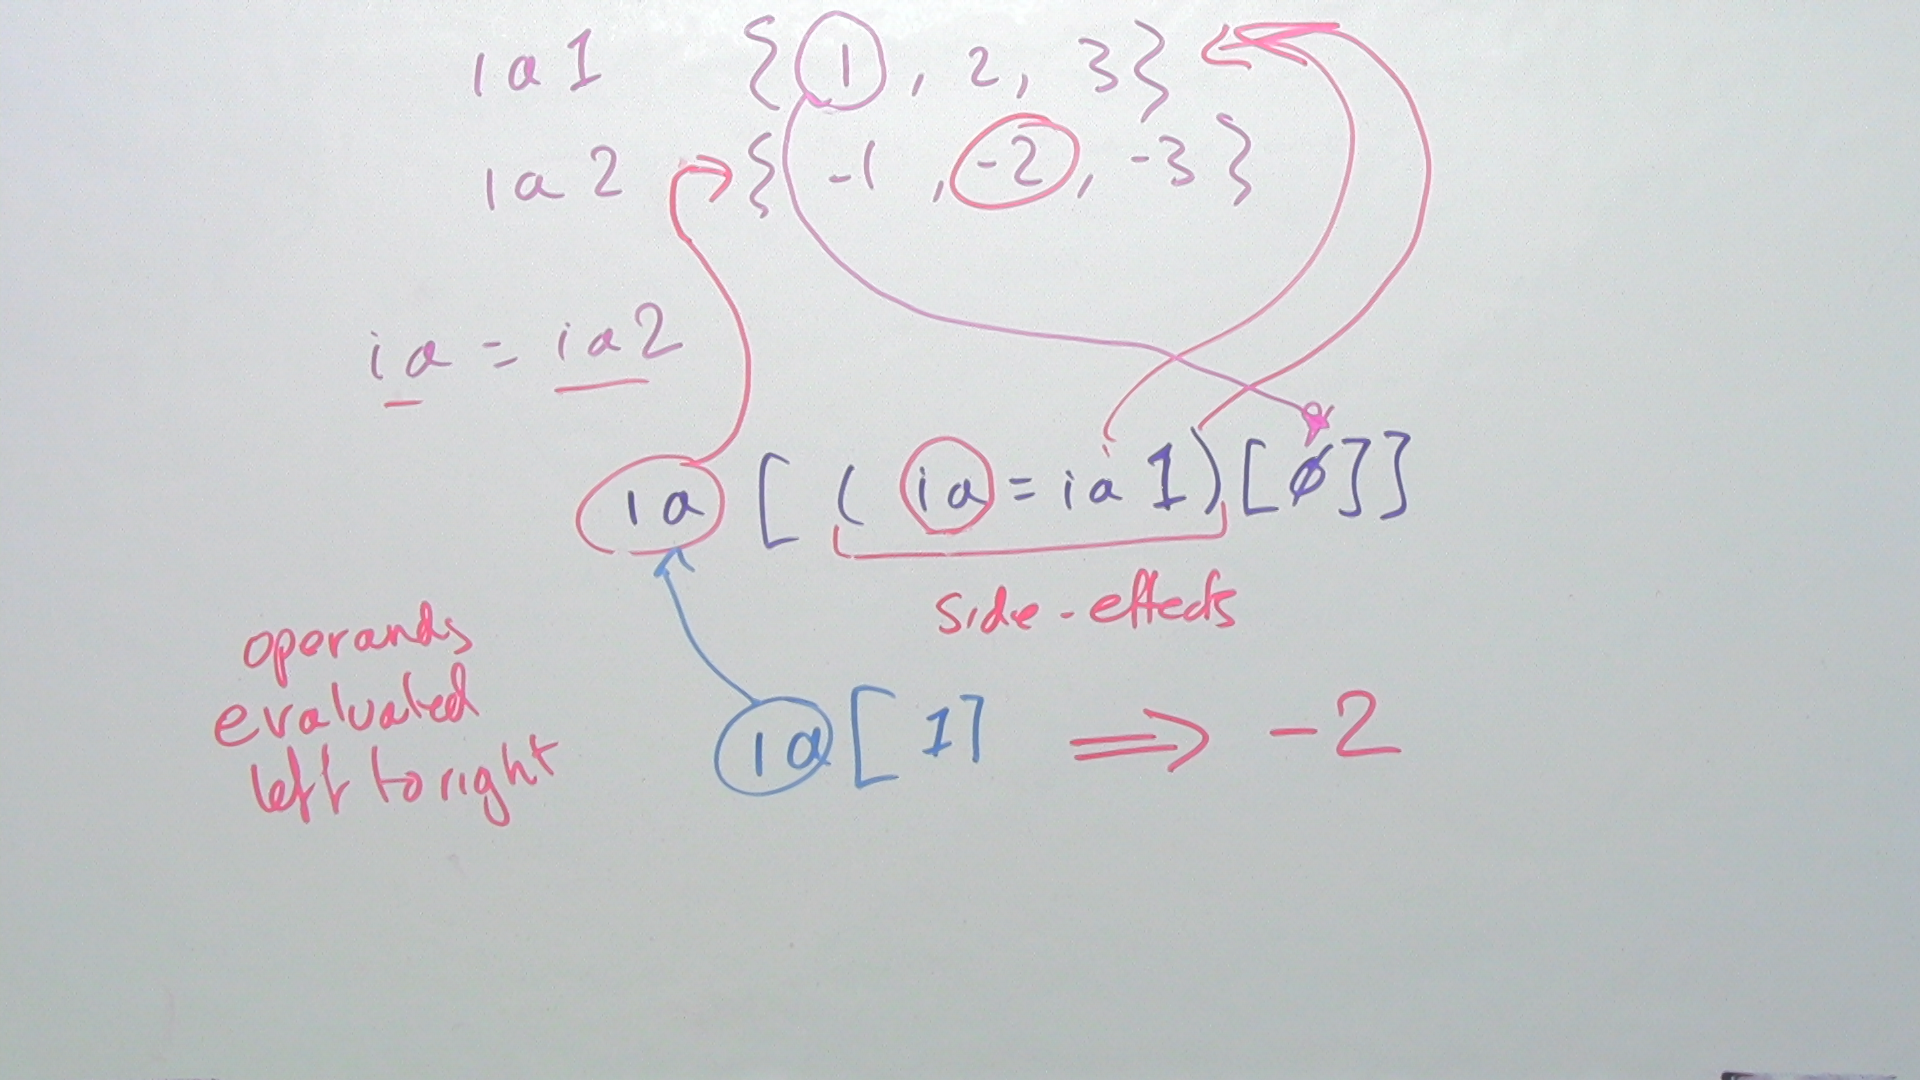 ia1 {1, 2, 3}
ia2 {-1, -2, -3}
ia = ia2
ia [ ( ia = ia1)[0]]
side-effects
operands
evaluated
left to right
ia[1] ⇒ -2